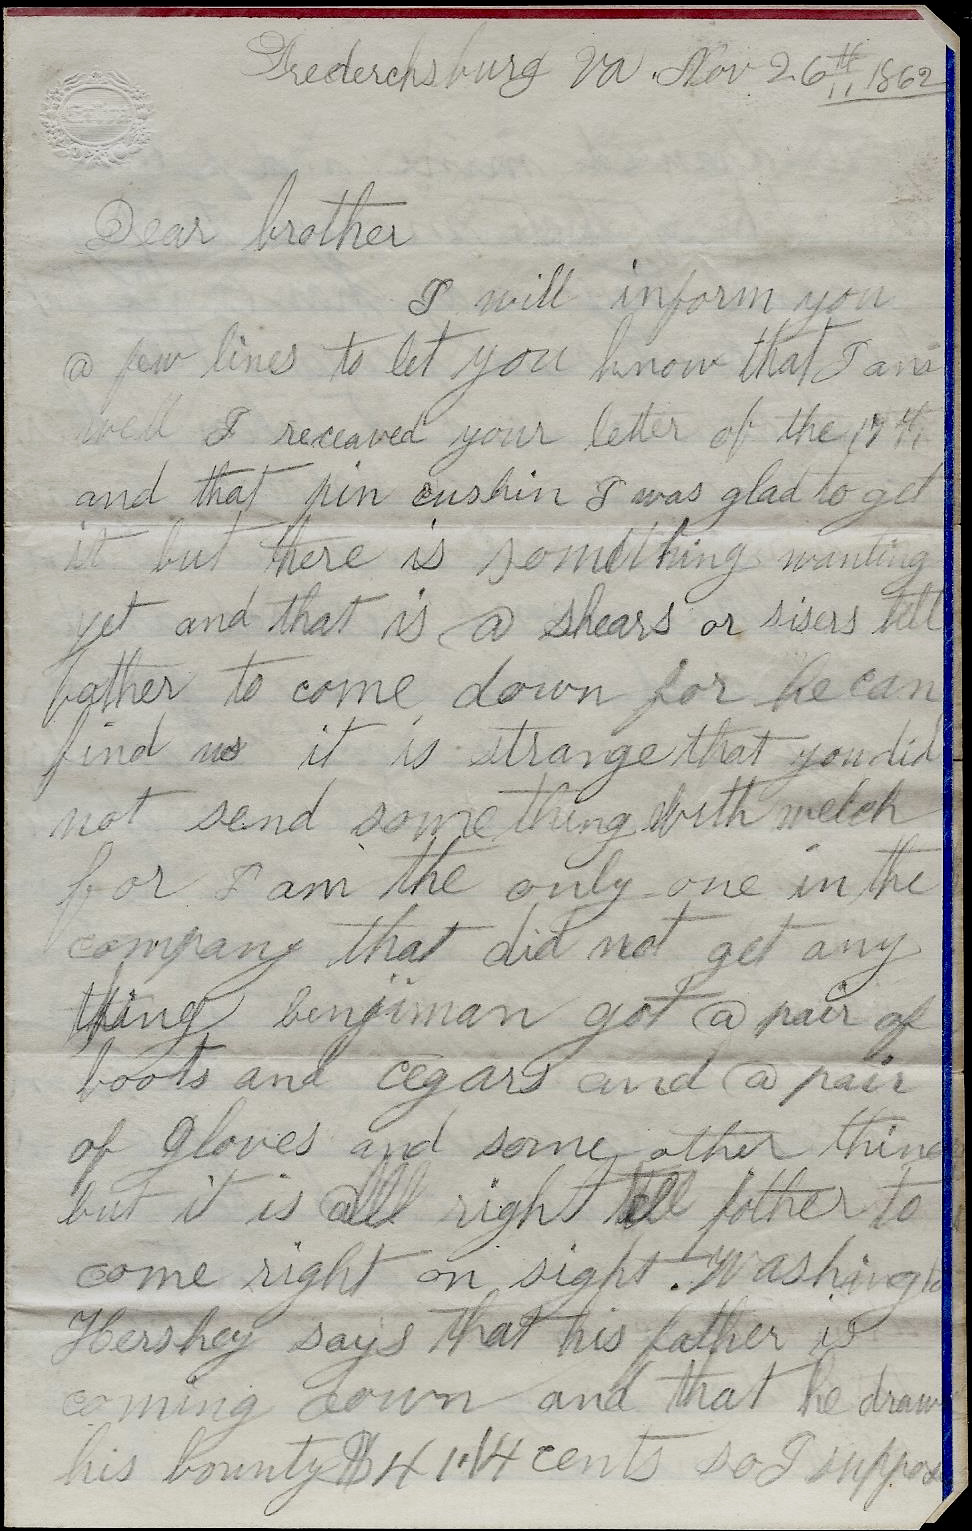 Frederchsburg Va. Nov 26th 1862
Dear brother
I will inform you
a few lines to let you know that I am
well I receaved your letter of the 17th
and that pin cushin I was glad to get
it but there is something wanting
yet and that is a shears or sisers tell
father to come down for he can
find us it is strange that you did
not send something with welch
for I am the only one in the
company that did not get any
thing benjiman got a pair of
boots and cegars and a pair
of gloves and some other thing
but it is all right tell father to
come right on sight. Washingto
Hershey says that his father is
coming down and that he draw
his bounty $41.14 cents so I suppose